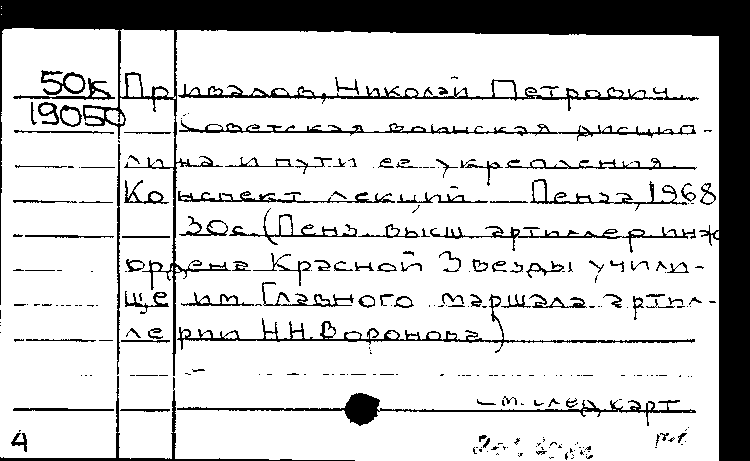 50к Привалов, Николай Петрович.
19050
Советская воинская дисцип-
лина и пути ее укрепления.
Конспект лекций. Пенза, 1968
30с. (Пенз. высш артиллер инж
ордена Красной Звезды учили-
ще им Главного маршала артил-
лерии Н.Н. Воронова)
См. след. карт
4